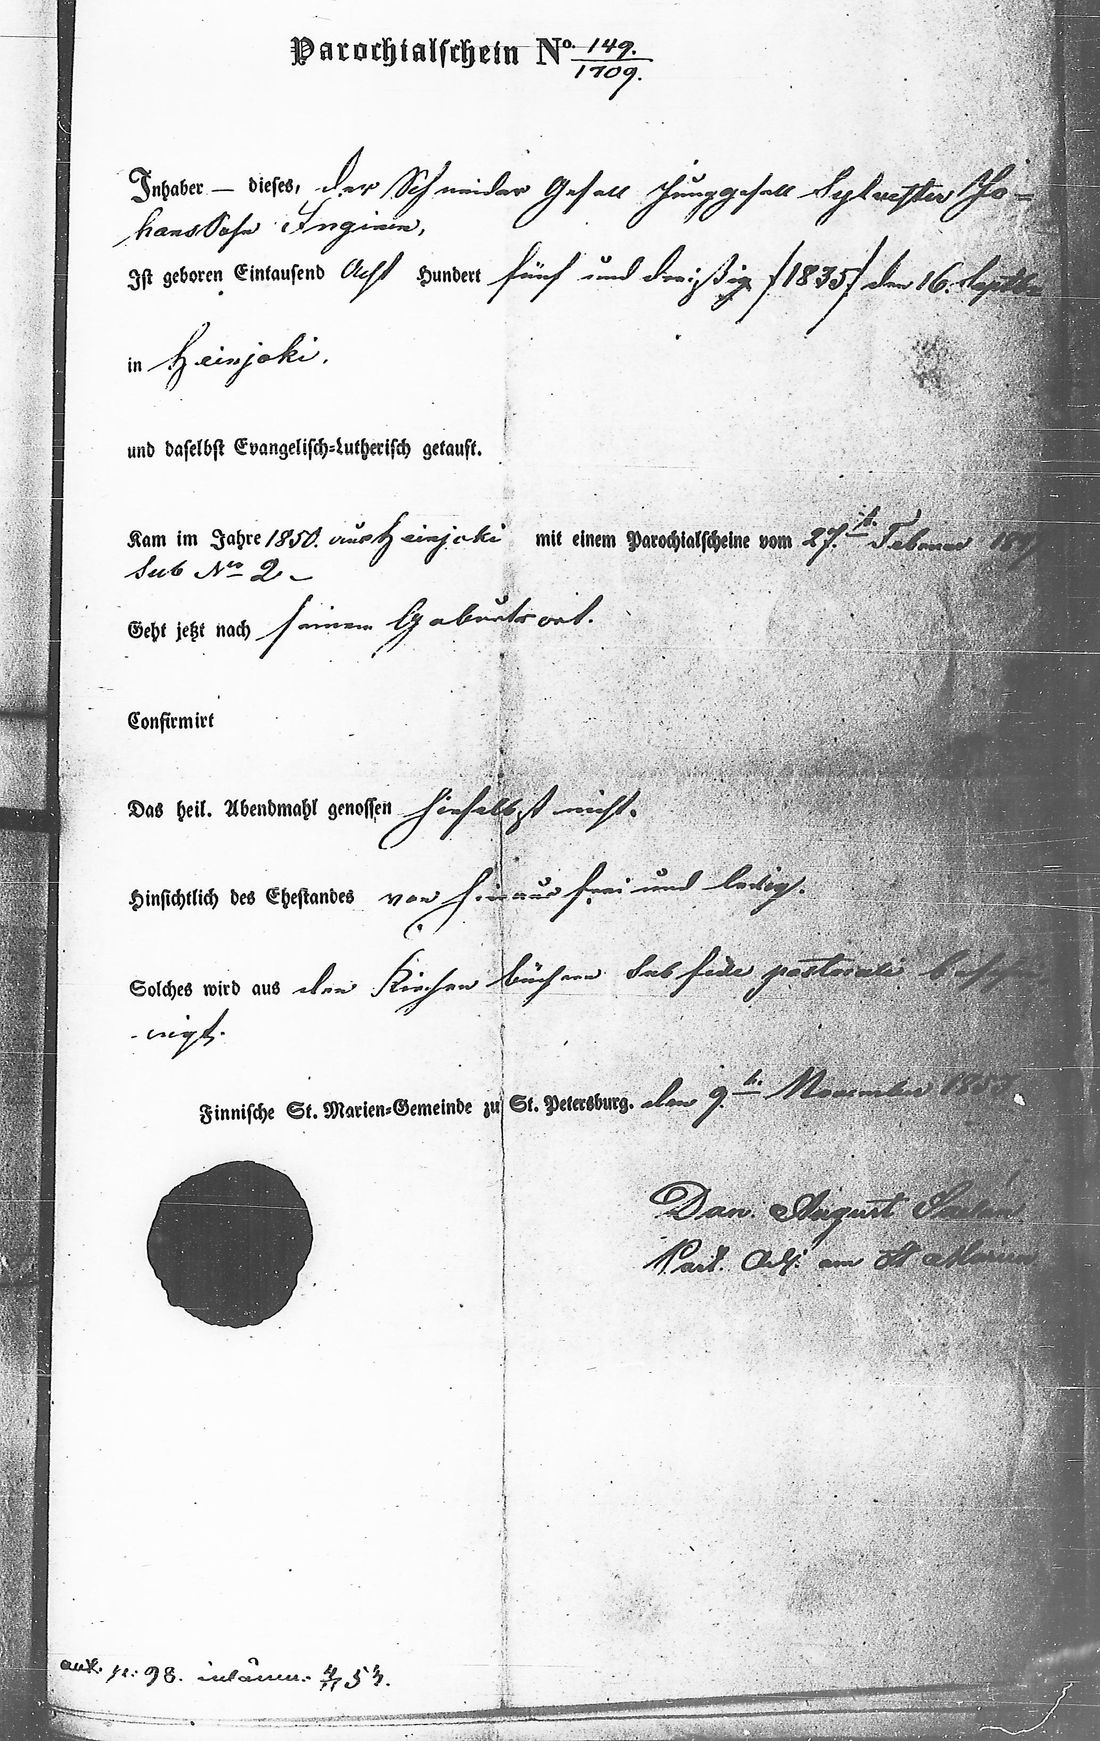 Parochialschein No. 149./1709.
Inhaber — dieses, der Schneider Gesell Junggesell Sylvester Jo=
hansSohn Inginen,
Ist geboren Eintausend Acht Hundert fünf und dreißig /1835/ den 16. Septbr
in Heinjoki.
und daselbst Evangelisch=Lutherisch getauft.
Kam im Jahre 1850. aus Heinjoki mit einem Parochialscheine vom 27. t. Februar
sub No 2 –
Geht jetzt nach seinem Geburtsort.
Confirmirt
Das heil. Abendmahl genossen hieselbst nicht.
Hinsichtlich des Ehestandes von hinaus frei und ledig.
Solches wird aus den Kirchenbüchern sub fide pastorali
-nigt.
Finnische St. Marien=Gemeinde zu St. Petersburg. den 9. t. November
Dan. August
Past. Adj. am St Marien
98. 53.